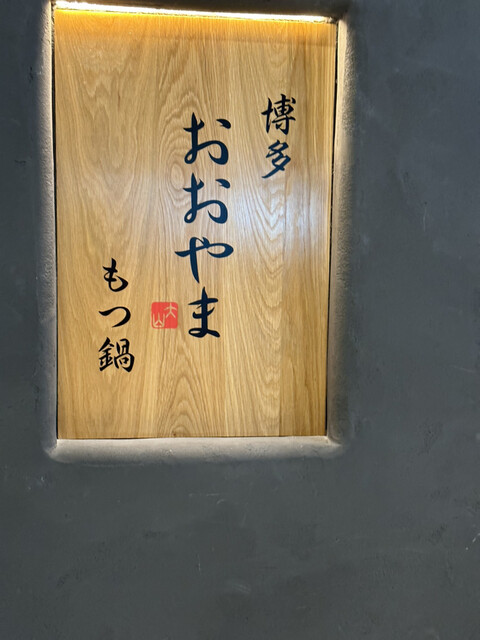 博多
おおやま
大山
もつ鍋